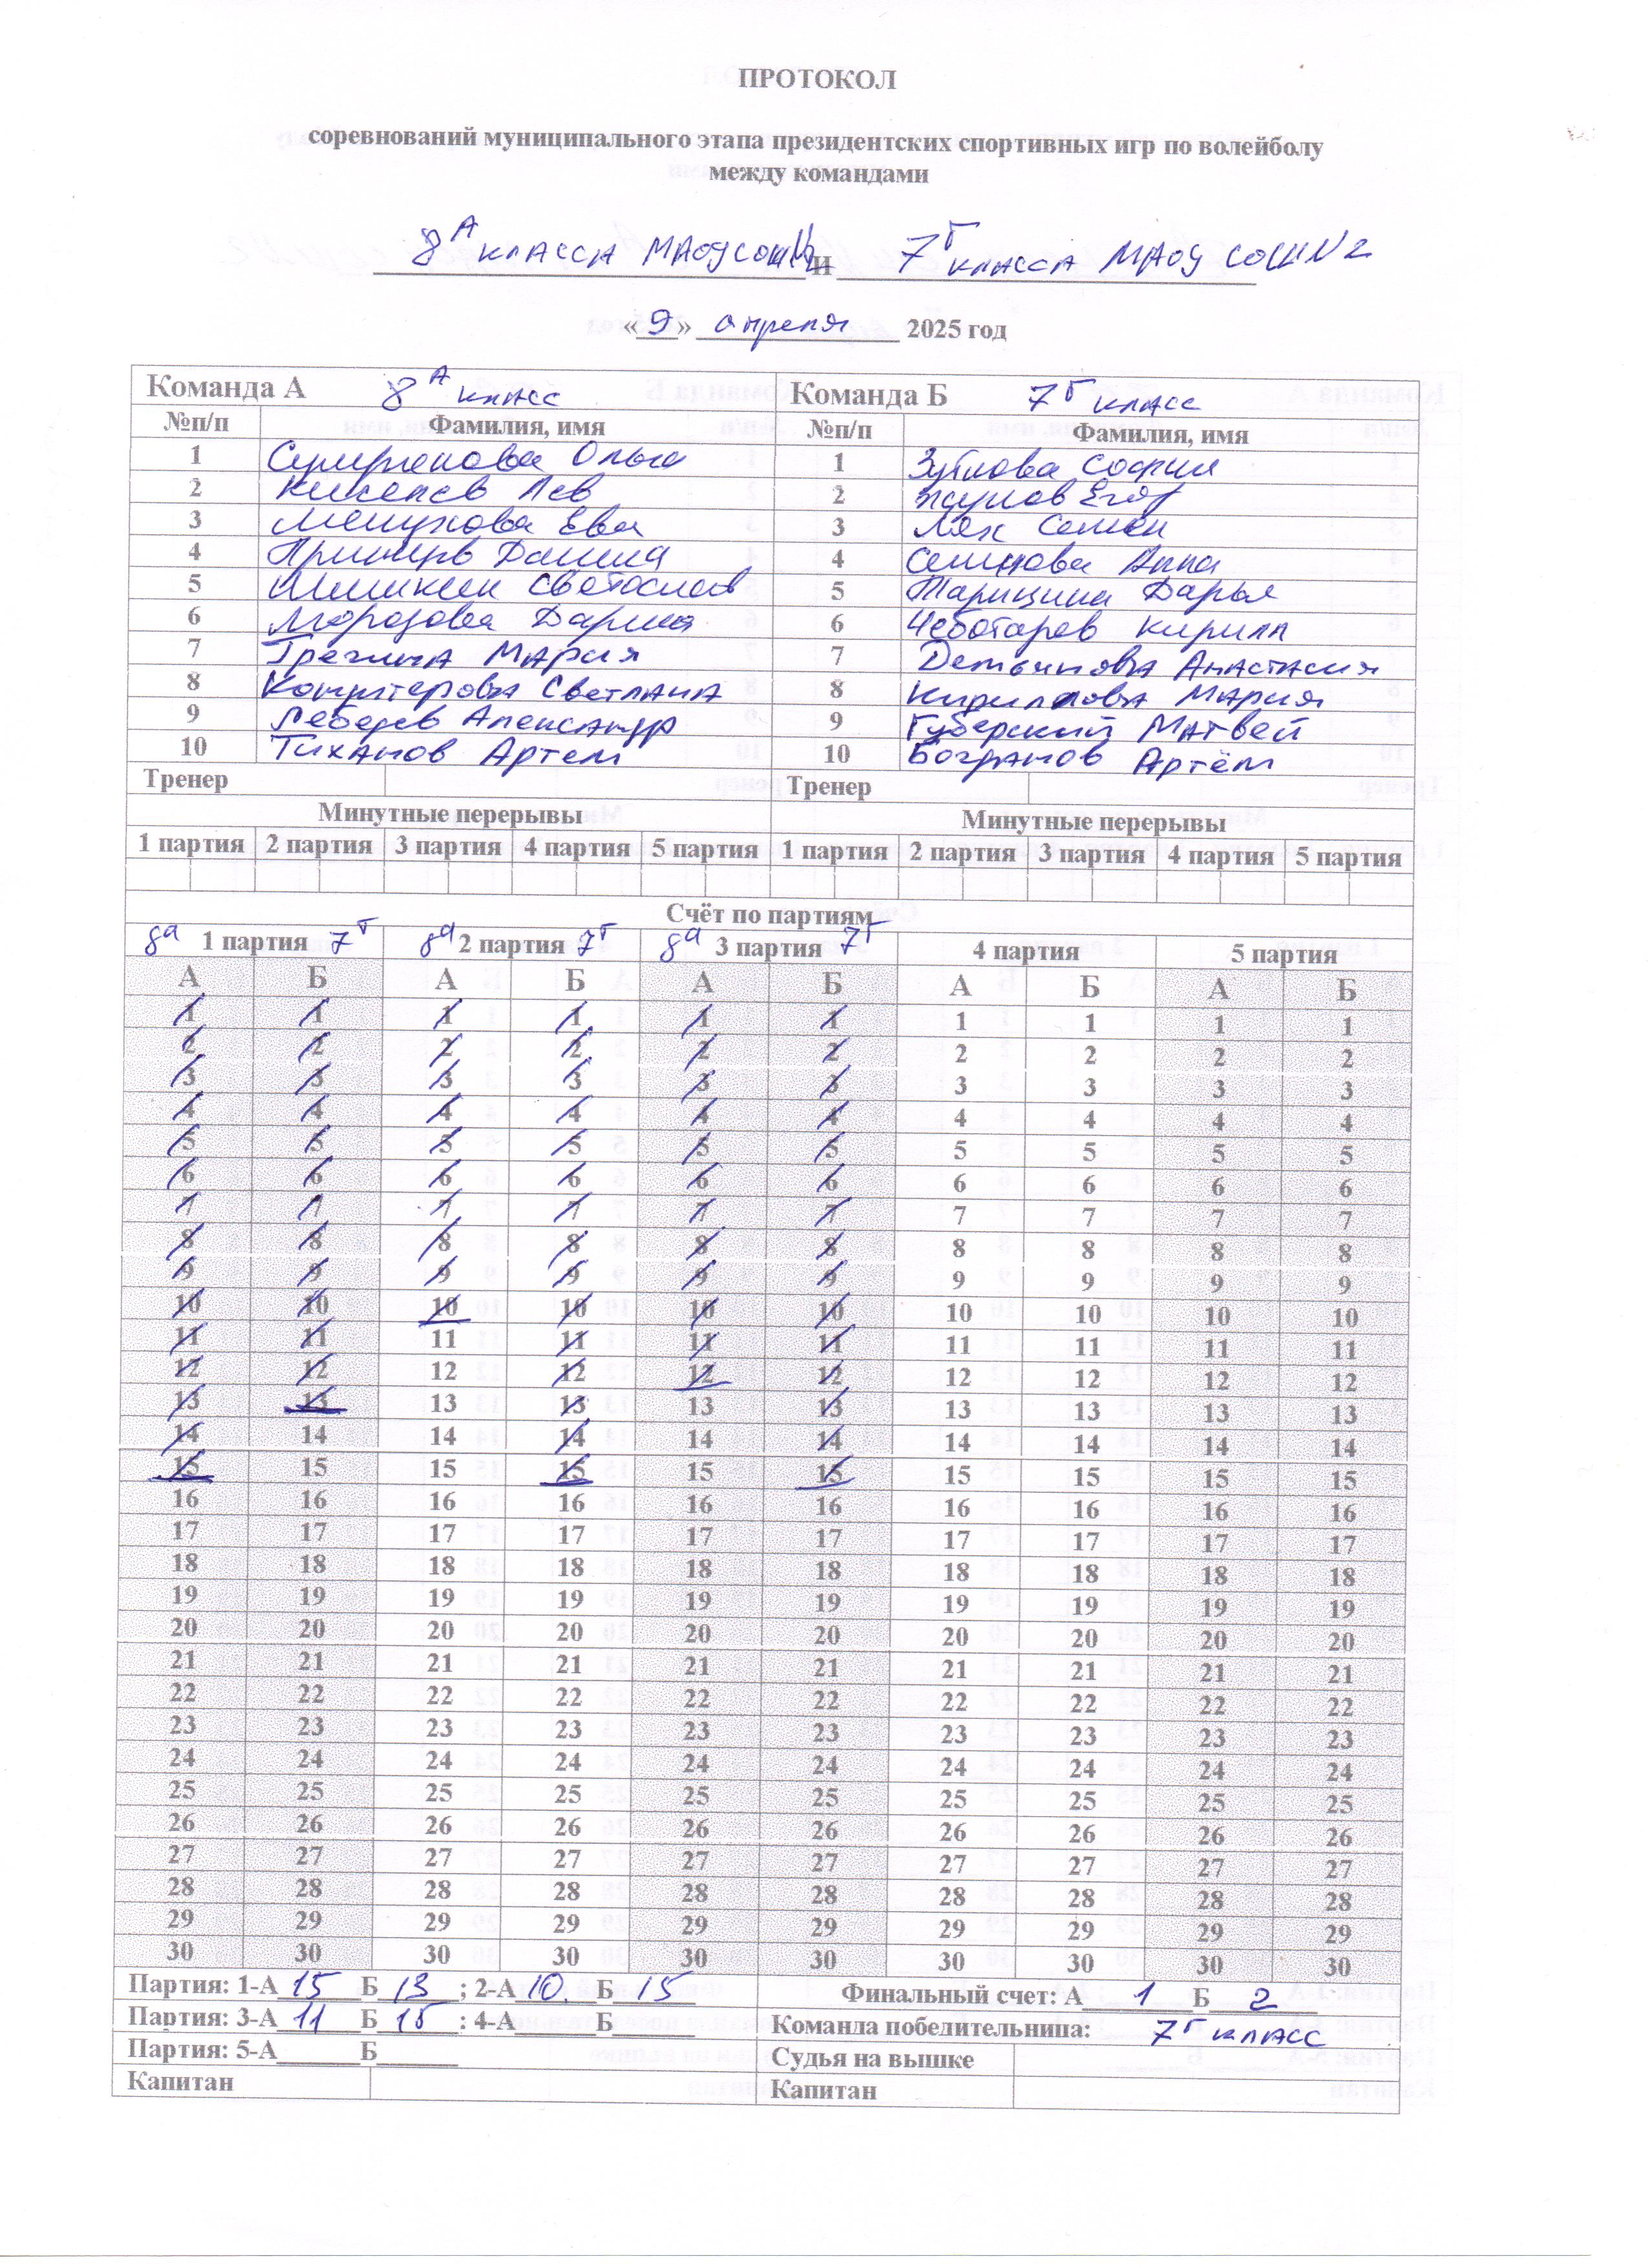 ПРОТОКОЛ
соревнований муниципального этапа президентских спортивных игр по волейболу
между командами
8А класса МАОУ СОШ№2 и 7Г класса МАОУ СОШ№2
«9» апреля 2025 год
Команда А 8А класс Команда Б 7Г класс
№п/п Фамилия, имя №п/п Фамилия, имя
1 Ольга 1 София
2 Киселев Лев 2 Егор
3 Ева 3 Лях Семен
4 4 Анна
5 Шишкин Светослав 5 Дарья
6 Морозова Дарина 6 Чеботарев Кирилл
7 Мария 7 Анастасия
8 Светлана 8 Кириллова Мария
9 Лебедев Александр 9 Губерский Матвей
10 Тиханов Артем 10 Богданов Артём
Тренер Тренер
Минутные перерывы Минутные перерывы
1 партия 2 партия 3 партия 4 партия 5 партия 1 партия 2 партия 3 партия 4 партия 5 партия
Счёт по партиям
8а 1 партия 7Г 8а 2 партия 7Г 8а 3 партия 7Г 4 партия 5 партия
А Б А Б А Б А Б А Б
1 1 1 1 1 1 1 1 1 1
2 2 2 2 2 2 2 2 2 2
3 3 3 3 3 3 3 3 3 3
4 4 4 4 4 4 4 4 4 4
5 5 5 5 5 5 5 5 5 5
6 6 6 6 6 6 6 6 6 6
7 7 7 7 7 7 7 7 7 7
8 8 8 8 8 8 8 8 8 8
9 9 9 9 9 9 9 9 9 9
10 10 10 10 10 10 10 10 10 10
11 11 11 11 11 11 11 11 11 11
12 12 12 12 12 12 12 12 12 12
13 13 13 13 13 13 13 13 13 13
14 14 14 14 14 14 14 14 14 14
15 15 15 15 15 15 15 15 15 15
16 16 16 16 16 16 16 16 16 16
17 17 17 17 17 17 17 17 17 17
18 18 18 18 18 18 18 18 18 18
19 19 19 19 19 19 19 19 19 19
20 20 20 20 20 20 20 20 20 20
21 21 21 21 21 21 21 21 21 21
22 22 22 22 22 22 22 22 22 22
23 23 23 23 23 23 23 23 23 23
24 24 24 24 24 24 24 24 24 24
25 25 25 25 25 25 25 25 25 25
26 26 26 26 26 26 26 26 26 26
27 27 27 27 27 27 27 27 27 27
28 28 28 28 28 28 28 28 28 28
29 29 29 29 29 29 29 29 29 29
30 30 30 30 30 30 30 30 30 30
Партия: 1-А 15 Б 13 ; 2-А 10 Б 15 Финальный счет: А 1 Б 2
Партия: 3-А 11 Б 15 : 4-А______Б______ Команда победительница: 7Г класс
Партия: 5-А______Б______ Судья на вышке
Капитан Капитан